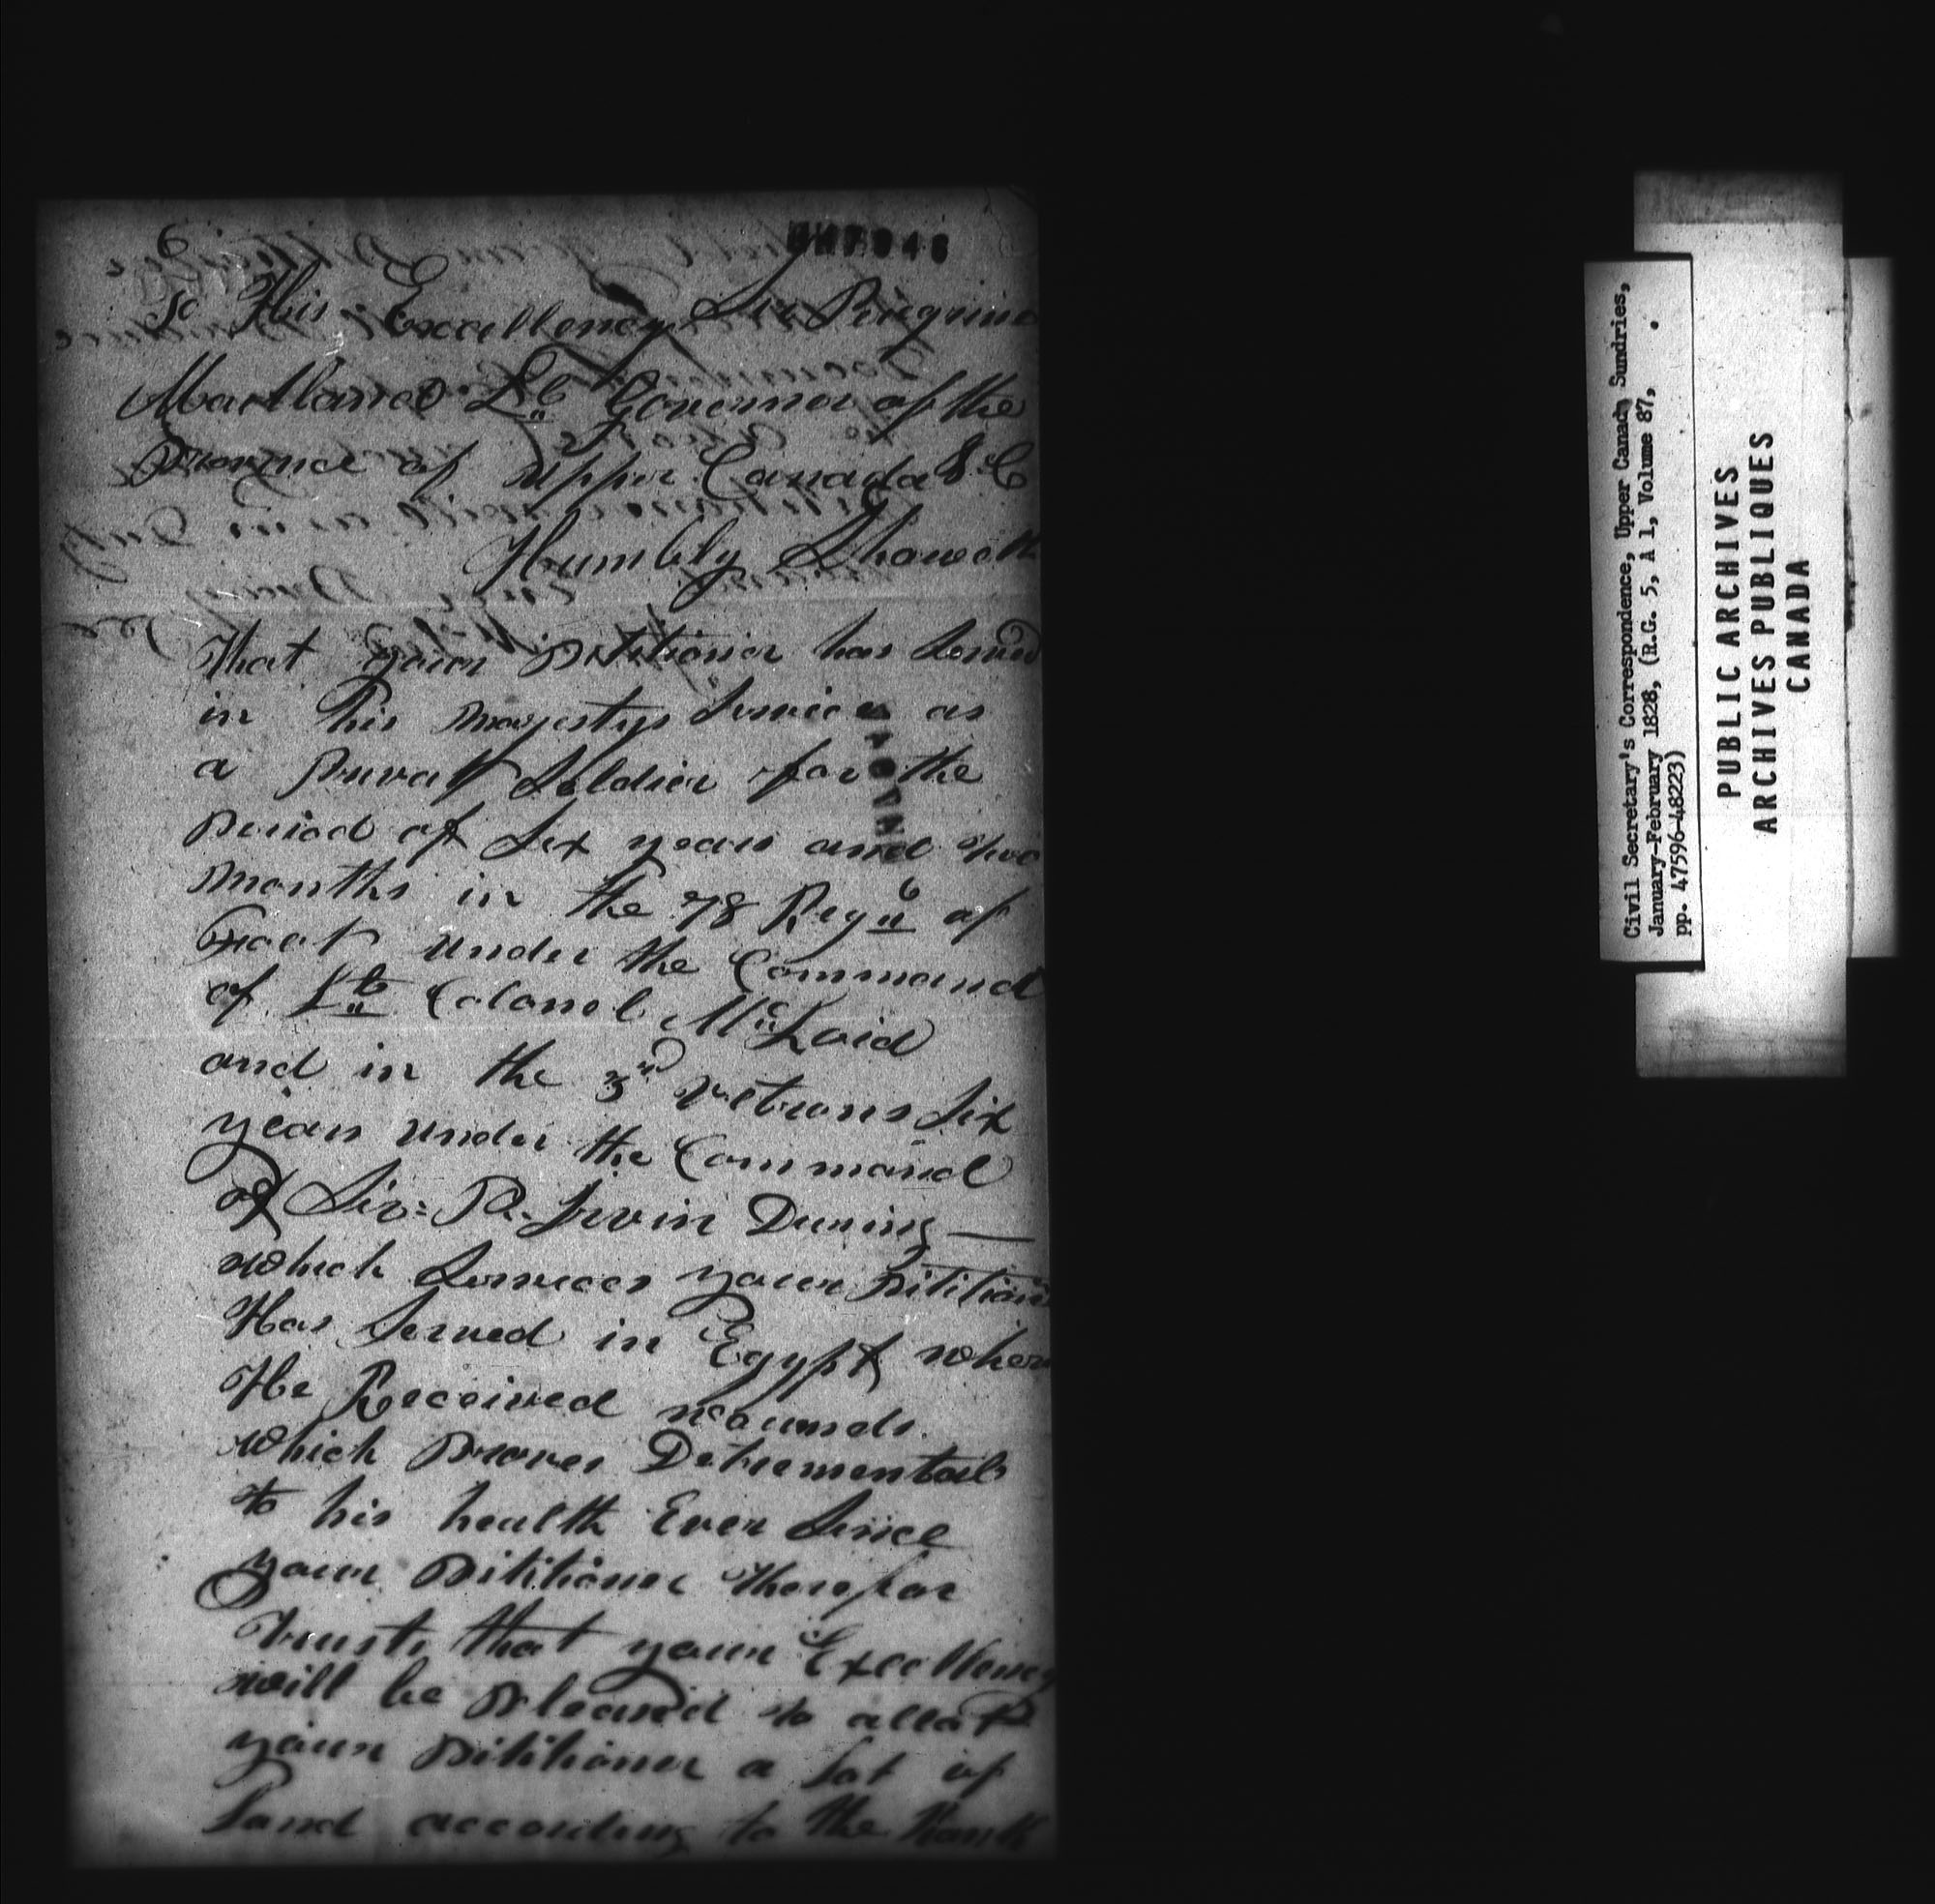 6
To His Excellency Sir Peregrine
Maitland Lt Governor of the
Province of Upper Canada &C
Humbly Showeth
That your Petitioner has Served
in his Majestys Service as
a Privat Soldier for the
Period of Six years and two
months in the 78 Regt of
Foot under the Command
of Lt Colonel McLoid
and in the 3rd Vetrans Six
years under the Command
of Sir P. Irvin During
which Services your Petitioner
Has Served in Egypt where
He Received wounds
which Proves Detremental
to his health Ever Since
your Petitioner therefor
trusts that your Excellency
will be Pleased to allot
your Petitioner a Lot of
Land according to the Rank
Civil Secretary's Correspondence, Upper Canada Sundries,
January-February 1828, (R.G. 5, A 1, Volume 87,
pp. 47596-48223)
PUBLIC ARCHIVES
ARCHIVES PUBLIQUES
CANADA